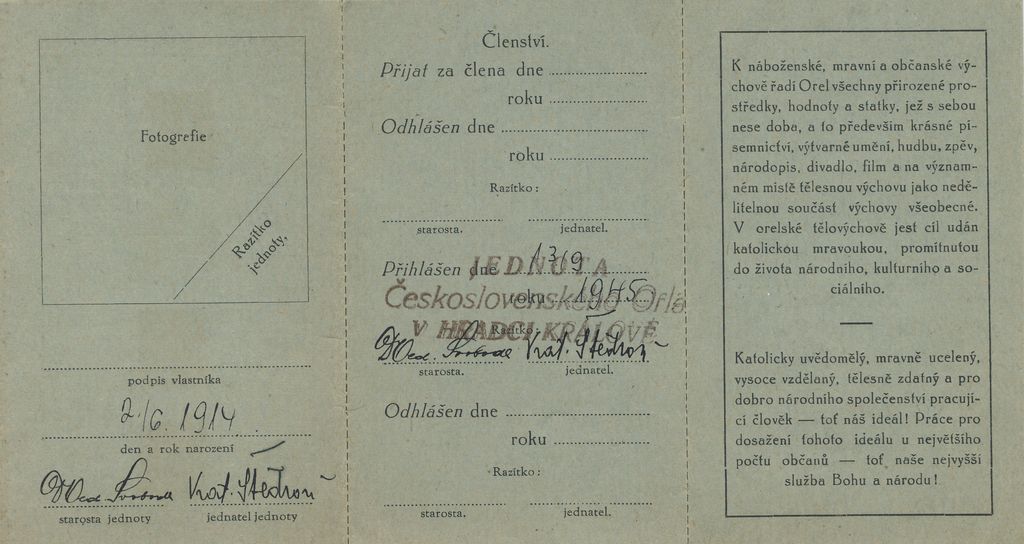 Fotografie
Razítko
jednoty.
podpis vlastníka
2./6. 1914
den a rok narození
Svoboda Vrat. Štědroň
starosta jednoty jednatel jednoty
Členství.
Přijat za člena dne
roku
Odhlášen dne
roku
Razítko:
starosta. jednatel.
Přihlášen dne 13/9
JEDNOTA
roku 1945
Československého Orla
Razítko:
V HRADCI KRÁLOVÉ
Svoboda Vrat. Štědroň
starosta. jednatel.
Odhlášen dne
roku
Razítko:
starosta. jednatel.
K náboženské, mravní a občanské vý-
chově řadí Orel všechny přirozené pro-
středky, hodnoty a statky, jež s sebou
nese doba, a to především krásné pí-
semnictví, výtvarné umění, hudbu, zpěv,
národopis, divadlo, film a na význam-
ném místě tělesnou výchovu jako nedě-
litelnou součást výchovy všeobecné.
V orelské tělovýchově jest cíl udán
katolickou mravoukou, promítnutou
do života národního, kulturního a so-
ciálního.
Katolicky uvědomělý, mravně ucelený,
vysoce vzdělaný, tělesně zdatný a pro
dobro národního společenství pracují-
cí člověk — toť náš ideál! Práce pro
dosažení tohoto ideálu u největšího
počtu občanů — toť naše nejvyšší
služba Bohu a národu!